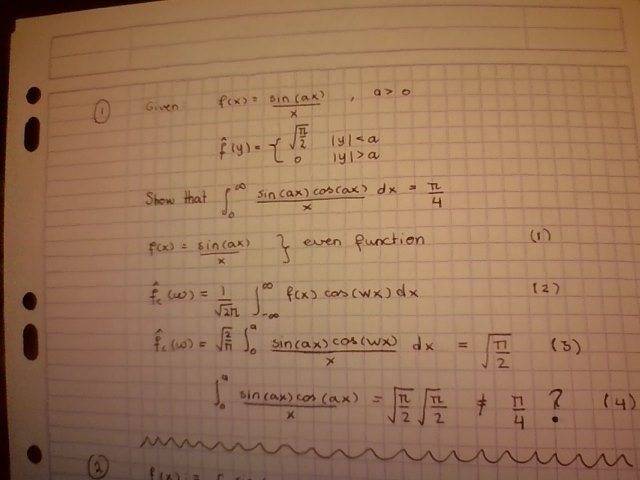 1 Given f(x) = sin(ax)/x , a > 0
f̂(y) = { √(π/2) |y| < a
0 |y| > a
Show that ∫₀^∞ sin(ax) cos(ax)/x dx = π/4
f(x) = sin(ax)/x } even function (1)
f̂c(w) = 1/√2π ∫₋∞^∞ f(x) cos(wx) dx (2)
f̂c(w) = √(2/π) ∫₀^a sin(ax) cos(wx)/x dx = √(π/2) (3)
∫₀^a sin(ax) cos(ax)/x = √(π/2) √(π/2) ≠ π/4 ? (4)
2